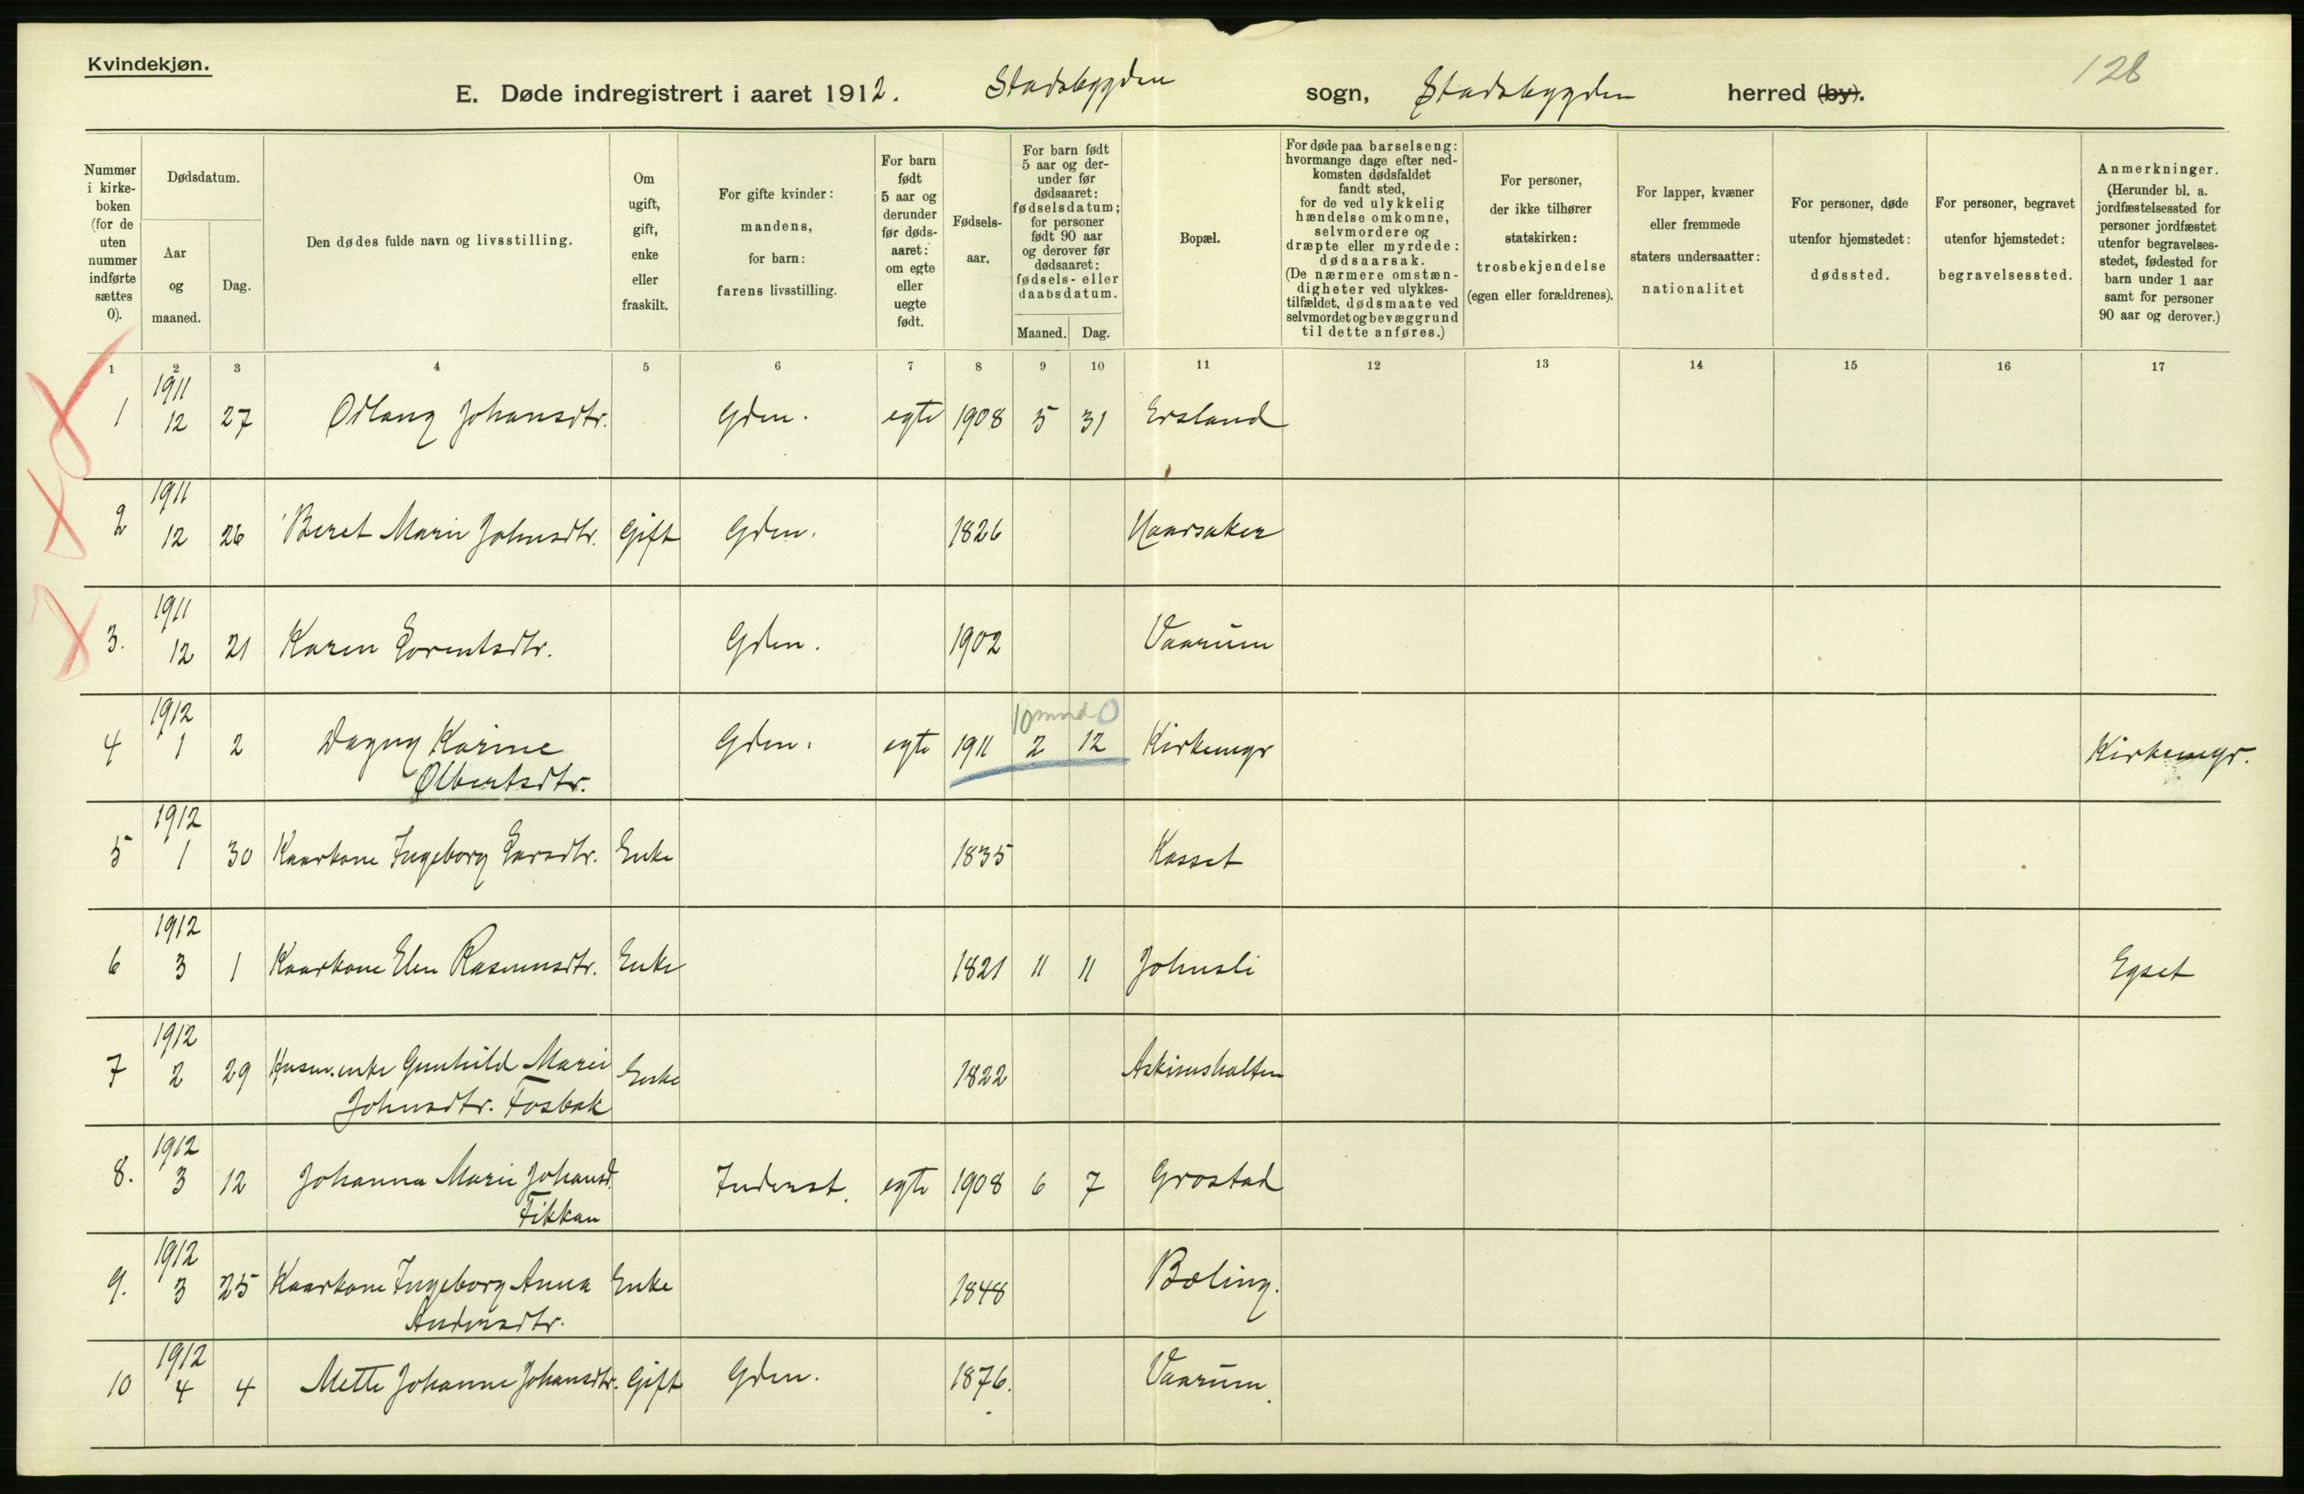 Kvindekjøn.
128
E. Døde indregistrert i aaret 1912. Stadsbygden sogn, Stadsbygden herred (by).
Nummer i kirke-boken (for de uten nummer indførte sættes 0).
Dødsdatum.
Aar og maaned.
Dag.
Den dødes fulde navn og livsstilling.
Om ugift, gift, enke eller fraskilt.
For gifte kvinder: mandens, for barn: farens livsstilling.
For barn født 5 aar og derunder før døds-aaret: om egte eller uegte født.
Fødsels-aar.
For barn født 5 aar og der-under før dødsaaret: fødselsdatum; for personer født 90 aar og derover før dødsaaret: fødsels- eller daabsdatum.
Maaned. Dag.
Bopæl.
For døde paa barselseng: hvormange dage efter ned-komsten dødsfaldet fandt sted, for de ved ulykkelig hændelse omkomne, selvmordere og dræpte eller myrdede: dødsaarsak. (De nærmere omstæn-digheter ved ulykkes-tilfældet, dødsmaate ved selvmordet og bevæggrund til dette anføres.)
For personer, der ikke tilhører statskirken: trosbekjendelse (egen eller forældrenes).
For lapper, kvæner eller fremmede staters undersaatter: nationalitet
For personer, døde utenfor hjemstedet: dødssted.
For personer, begravet utenfor hjemstedet: begravelsessted.
Anmerkninger. (Herunder bl. a. jordfæstelsessted for personer jordfæstet utenfor begravelses-stedet, fødested for barn under 1 aar samt for personer 90 aar og derover.)
1 2 3 4 5 6 7 8 9 10 11 12 13 14 15 16 17
1911
1 12 27 Odlaug Johansdtr. Gdm. egte 1908 5 31 Ersland
1911
2 12 26 Beret Marie Johnsdtr. Gift Gdm. 1826 Haarsaker
1911
3. 12 21 Karen Lorentsdtr. Gdm. 1902 Vaarum
1912 10 mnd 0
4 1 2 Dagny Karine Gdm. egte 1911 2 12 Kirkemyr Kirkemyr.
Olbertsdtr.
1912
5 1 30 Kaarkone Ingeborg Larsdtr. Enke 1835 Kasset
1912
6 3 1 Kaarkone Elen Rasmusdtr. Enke 1821 11 11 Johnsli Egset
1912
7 2 29 Husm.enke Gunhild Marie Enke 1822 Askimshalten
Johnsdtr. Fosbak
1912
8. 3 12 Johanna Marie Johansd. Inderst. egte 1908 6 7 Grostad
Fikkan
1912
9. 3 25 Kaarkone Ingeborg Anna Enke 1848 Boling.
Andersdtr.
1912
10 4 4 Mette Johanne Johansdtr. Gift Gdm. 1876. Vaarum.